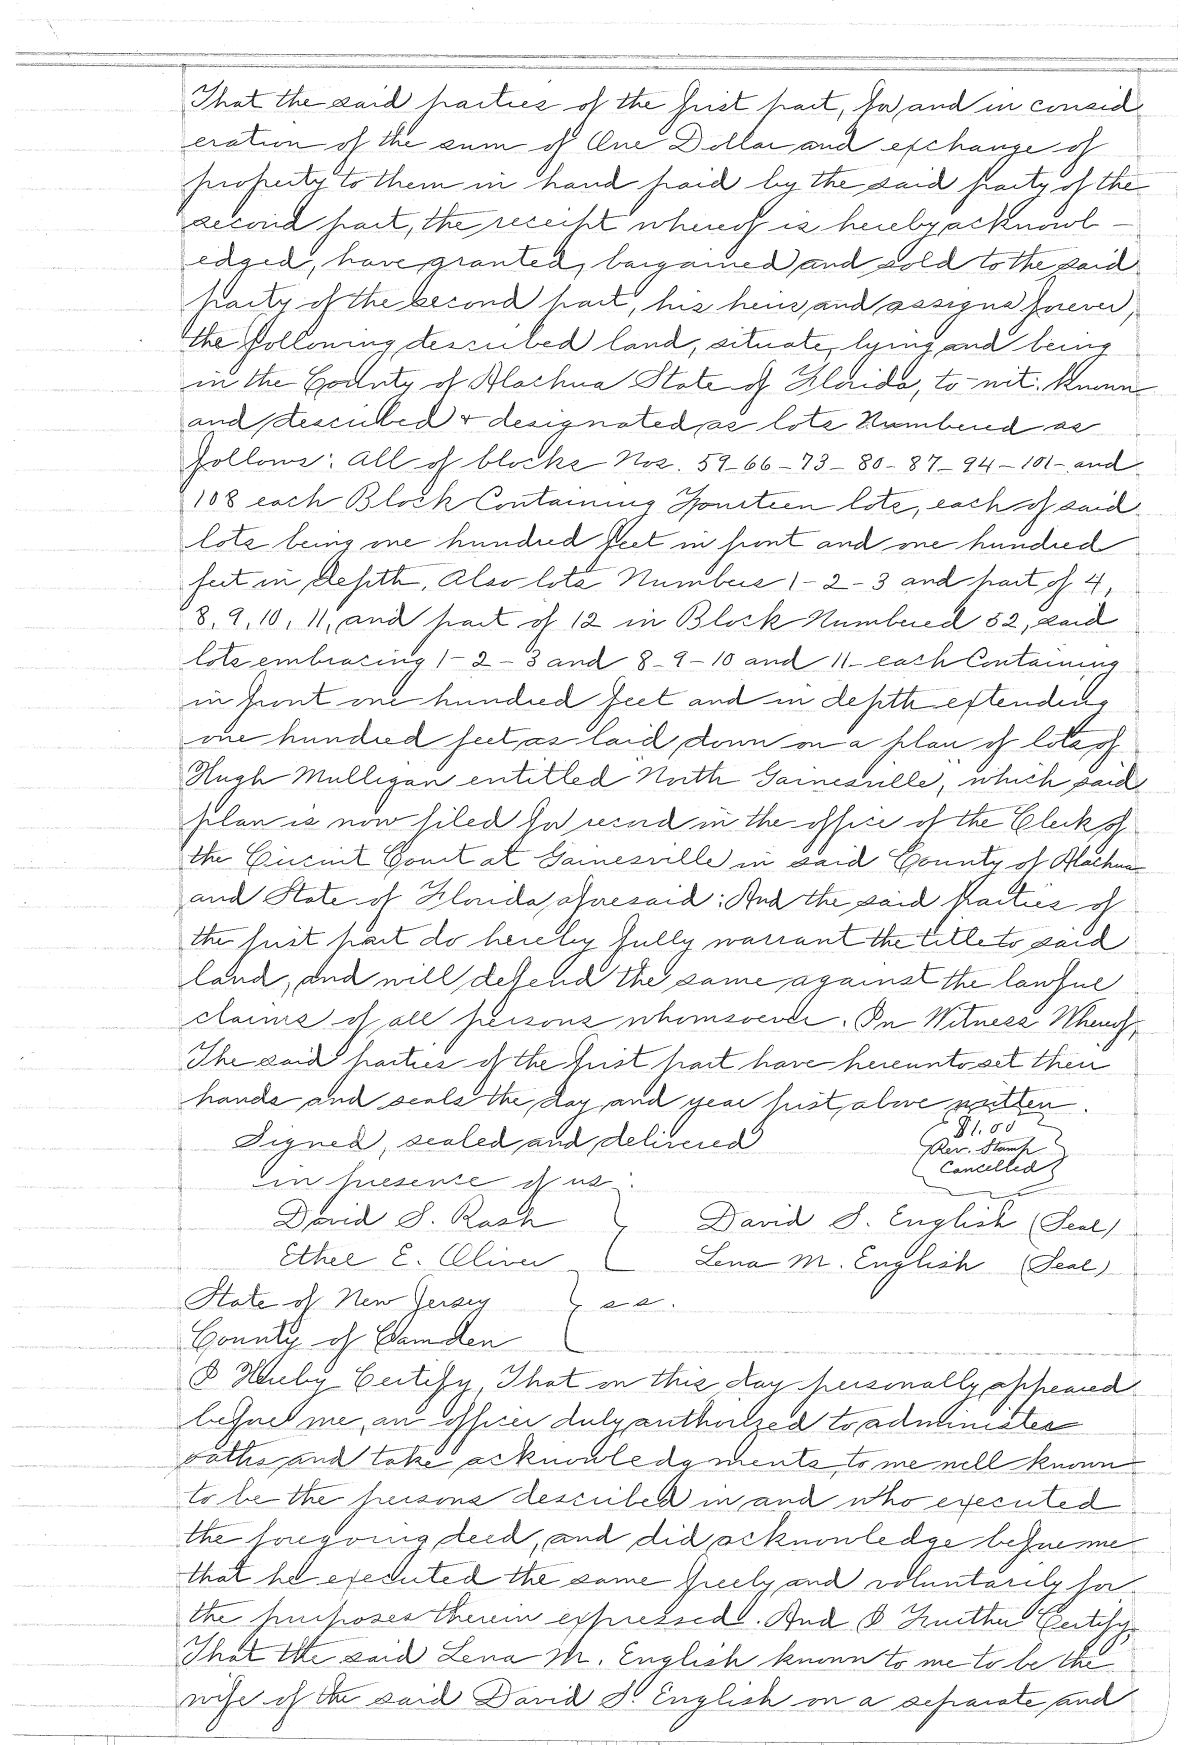 That the said parties of the first part, for and in consid
eration of the sum of One Dollar and exchange of
property to them in hand paid by the said party of the
second part, the receipt whereof is hereby acknowl-
edged, have granted, bargained and sold to the said
party of the second part, his heirs and assigns forever,
the following described land, situate, lying and being
in the County of Alachua State of Florida, to-wit: Known
and described & designated as lots Numbered as
follows: All of blocks Nos. 59-66-73-80-87-94-101-and
108 each Block Containing Fourteen lots, each of said
lots being one hundred feet in front and one hundred
feet in depth. Also lots Numbers 1-2-3 and part of 4,
8, 9, 10, 11, and part of 12 in Block Numbered 52, said
lots embracing 1-2-3 and 8-9-10 and 11-each Containing
in front one hundred feet and in depth extending
one hundred feet as laid down on a plan of lots of
Hugh Mulligan entitled "North Gainesville", which said
plan is now filed for record in the office of the Clerk of
the Circuit Court at Gainesville in said County of Alachua
and State of Florida aforesaid: And the said parties of
the first part do hereby fully warrant the title to said
land, and will defend the same against the lawful
claims of all persons whomsoever. In Witness Whereof,
The said parties of the first part have hereunto set their
hands and seals the day and year first above written.
Signed, sealed and delivered
$1.00
Rev. Stamp
Cancelled
in presence of us:
David S. Rash } David S. English (Seal)
Ethel E. Oliver { Lena M. English (Seal)
State of New Jersey } s s.
County of Camden
I Hereby Certify, That on this day personally appeared
before me, an officer duly authorized to administer
oaths and take acknowledgments, to me well known
to be the persons described in and who executed
the foregoing deed, and did acknowledge before me
that he executed the same freely and voluntarily for
the purposes therein expressed. And I Further Certify,
That the said Lena M. English known to me to be the
wife of the said David S. English on a separate and